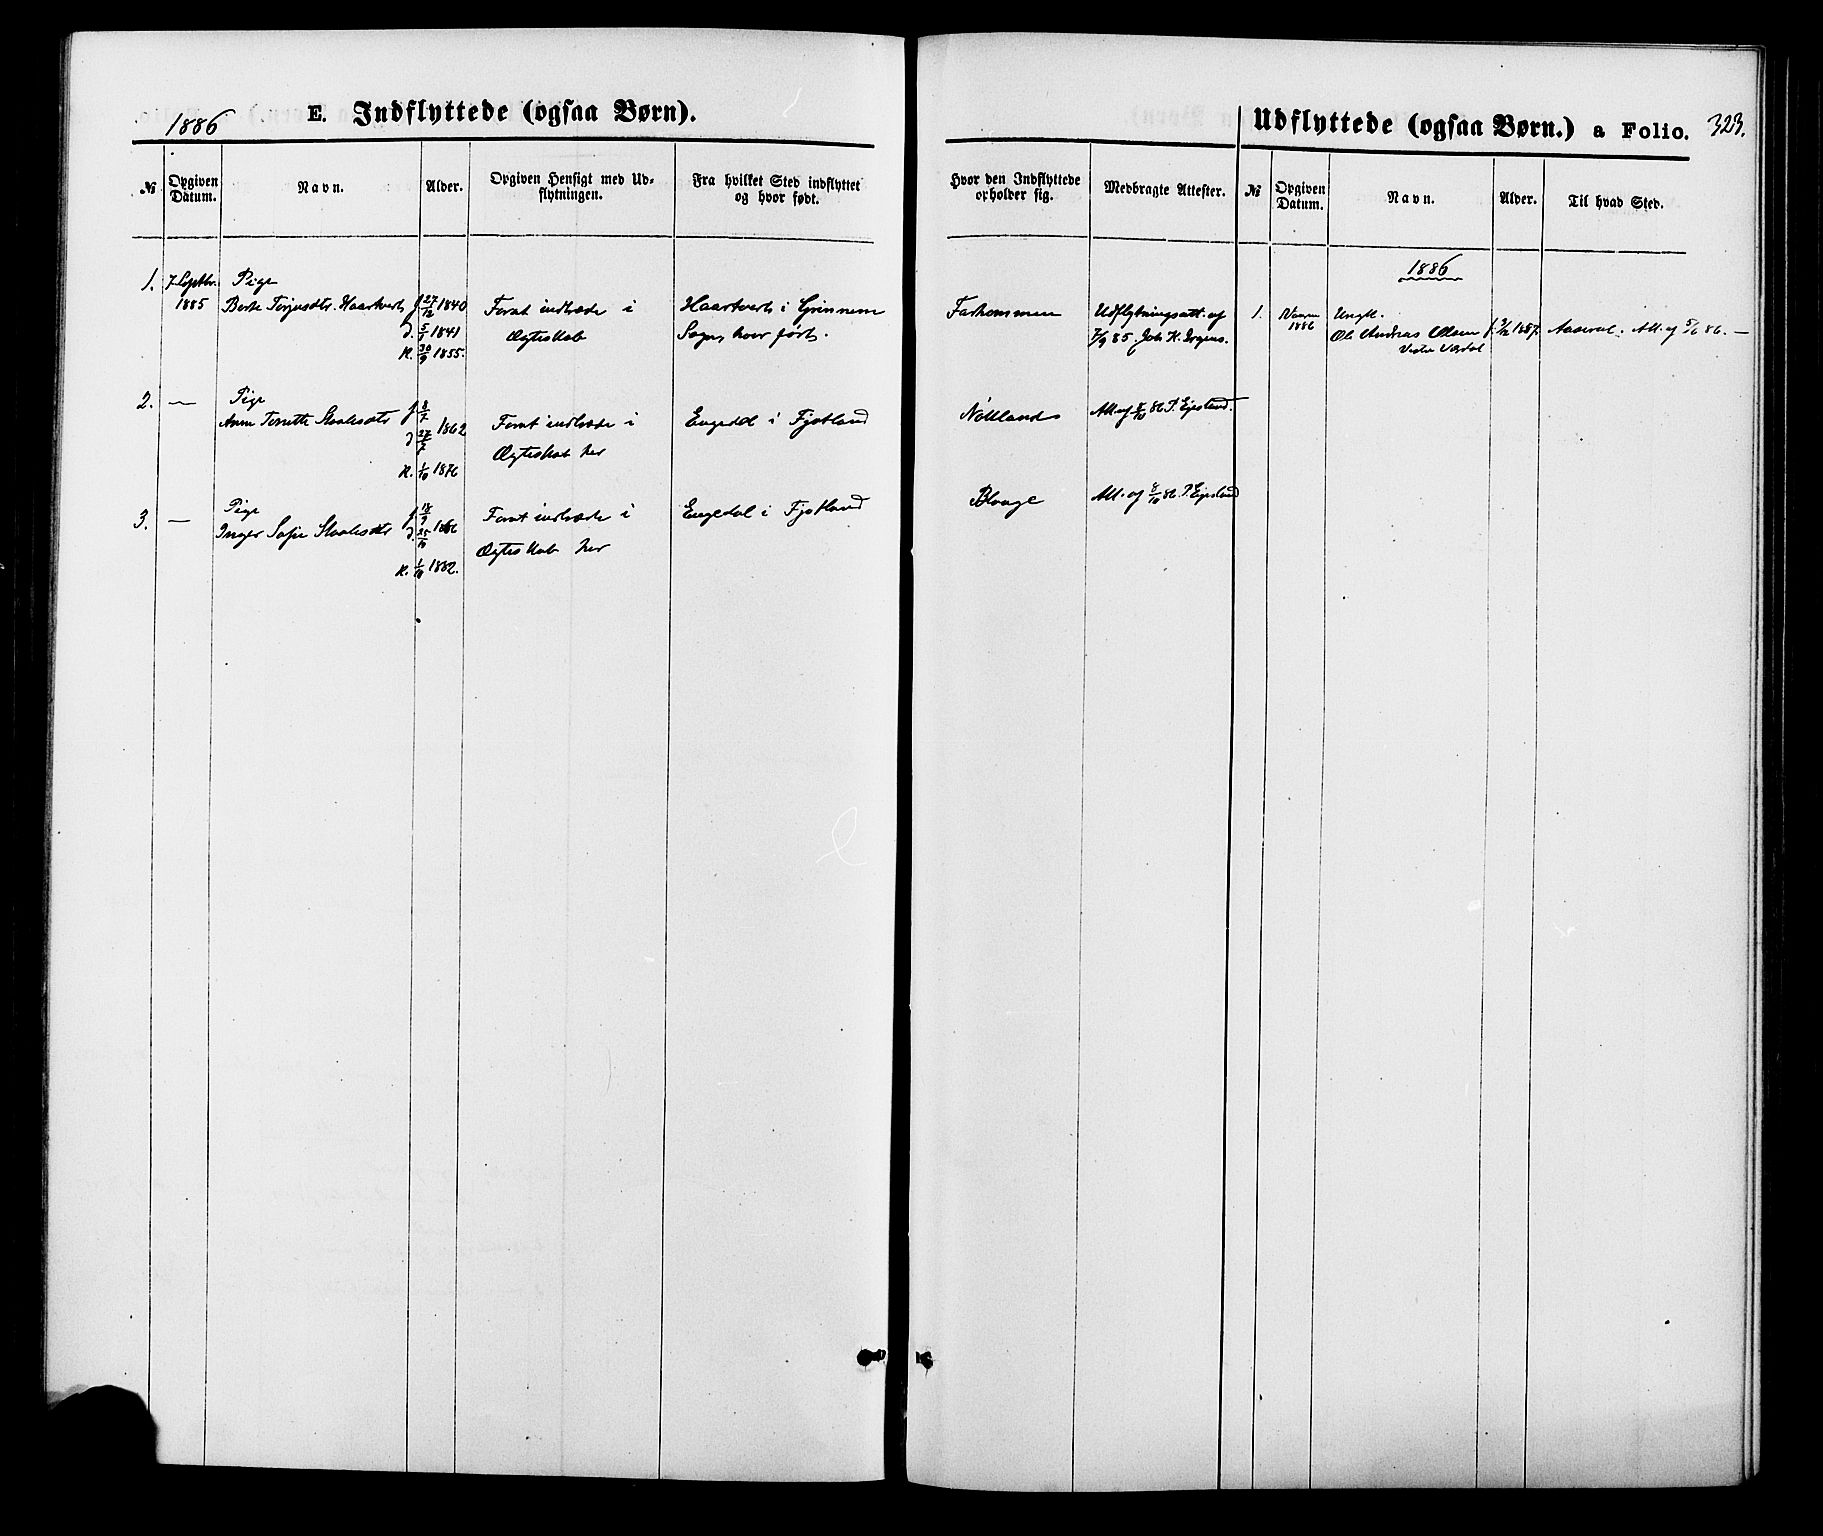 1886
E. Indflyttede (ogsaa Børn).
№
Opgiven Datum.
Navn.
Alder.
Opgiven Hensigt med Udflytningen.
Fra hvilket Sted indflyttet og hvor født.
1. 7 Septbr. 1885
Pige
Berte Terjesdtr. Haartveit
f 27/12 1840
d. 5/1 1841
K. 30/9 1855.
For at indtræde i
Ægteskab
Haartveit i
Sogn, hvor født.
2. —
Pige
Anne Tonette Staalesdtr
f 8/7
d 27/7 1862
K. 1/10 1876
For at indtræde i
Ægteskab her
Engedal i Fjotland
3. —
Pige
Inger Sofie Staalesdtr
f 18/9
d. 25/10
K. 1/10 1882.
For at indtræde i
Ægteskab her
Engedal i Fjotland
Hvor den Indflyttede opholder sig.
Medbragte Attester.
Udflytningsatt. af
7/9 85. Joh. K.
Att. af 8/10 86
Att. af 8/10 86
Udflyttede (ogsaa Børn.) a Folio. 323.
№
Opgiven Datum.
Navn.
Alder.
Til hvad Sted.
1886
1.
1886
Ungk.
Ole Andreas Olsen
Aaseral. Att. af 5/6 86. —